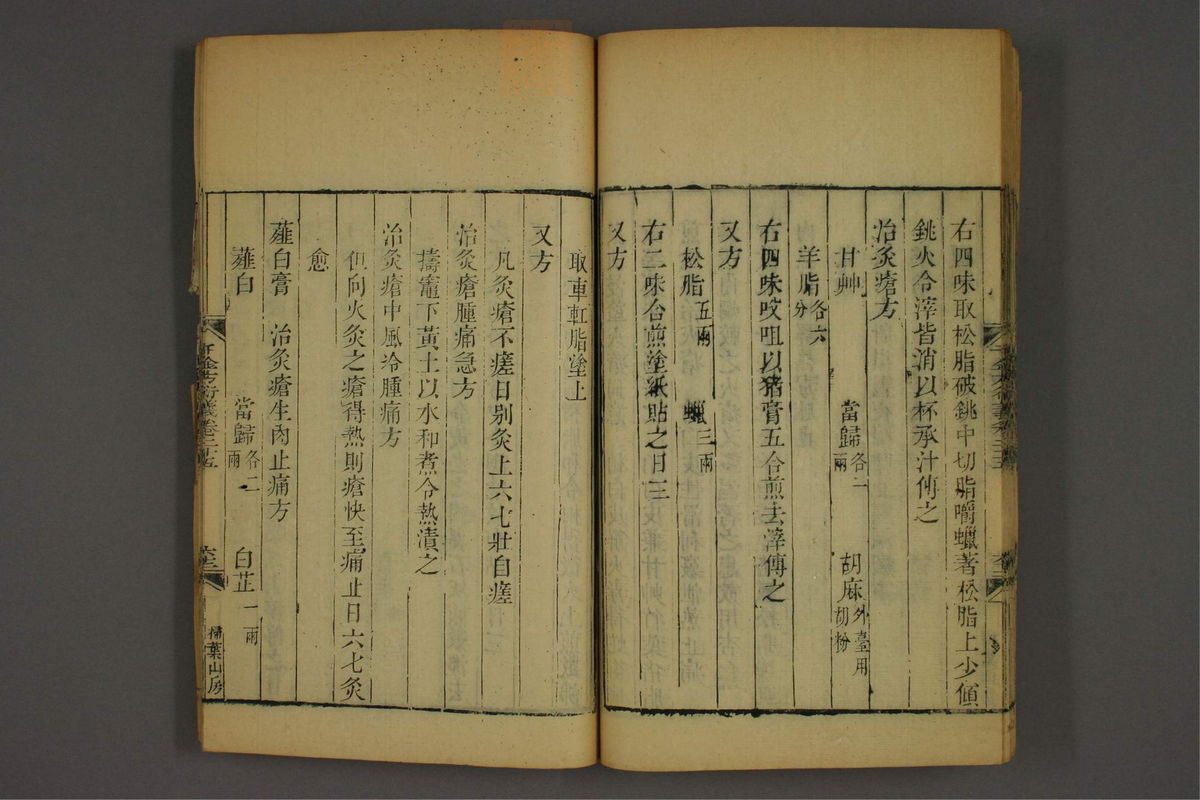 右四味取松脂破銚中切脂嚼蠟著松脂上少傾
銚火令滓皆消以杯承汁傅之
治灸瘡方
甘艸　當歸各二兩　胡麻外臺用胡粉
羊脂各六分
右四味㕮咀以猪膏五合煎去滓傅之
又方
松脂五兩　蠟三兩
右二味合煎塗紙貼之日三
又方
取車䡎脂塗上
又方
凡灸瘡不瘥日别灸上六七壯自瘥
治灸瘡腫痛急方
擣竈下黃土以水和煮令熱漬之
治灸瘡中風冷腫痛方
但向火灸之瘡得熱則瘡快至痛止日六七灸
愈
薤白膏　治灸瘡生肉止痛方
薤白　當歸各二兩　白芷一兩
千金方衍義卷二十五
掃葉山房